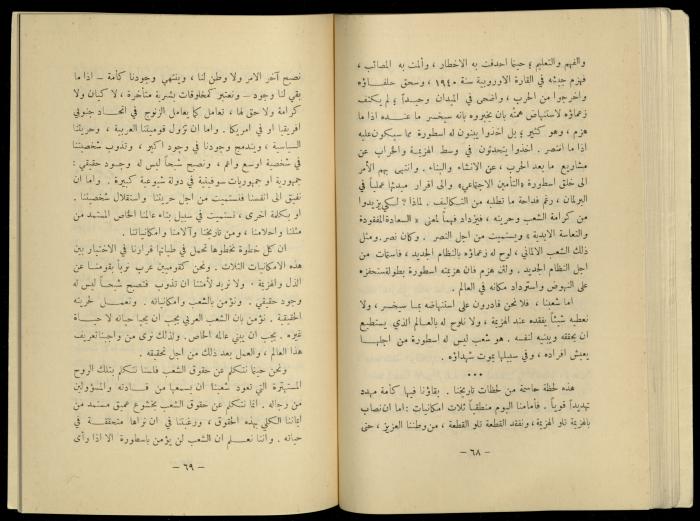 والفهم والتعليم ؛ حينما احدقت به الاخطار ، وألمت به المصائب ،
فهزم جيشه في القارة الاوروبية سنة ١٩٤٠ ، وسحق حلفاؤه
واخرجوا من الحرب ، واضحى في الميدان وحيداً ؛ لم يكتف
زعماؤه لاستنهاض همته بان يخبروه بانه سيخسر ما عنده اذا ما
هزم ، وهو كثير ؛ بل اخذوا يبنون له اسطورة مما سيكون عليه
اذا ما انتصر . اخذوا يتحدثون في وسط الهزيمة والخراب عن
مشاريع ما بعد الحرب ، عن الانشاء والبناء . وانتهى بهم الأمر
الى خلق اسطورة «التأمين الاجتماعي» والى اقرار مبدئها عملياً في
البرلمان ، رغم فداحة ما تطلبه من التكاليف . لماذا ? لكي يزيدوا
من كرامة الشعب وحريته ، فيزداد فهماً لمعنى «السعادة المفقودة
والتعاسة الابدية» ويستميت من اجل النصر . وكان نصر . ومثل
ذلك الشعب الالماني ، لوح له زعماؤه بالنظام الجديد ، فاستمات من
اجل النظام الجديد . ولئن هزم فان هزيمته اسطورة بطولة ستحفزه
على النهوض واسترداد مكانه في العالم .
اما شعبنا ، فلا نحن قادرون على استنهاضه بما سيخسر ، ولا
نعطيه شيئاً يفقده عند الهزيمة ، ولا نلوح له بالعالم الذي يستطيع
ان يحققه ويبنيه لنفسه . هو شعب ليس له اسطورة من اجلها
يعيش افراده ، وفي سبيلها يموت شهداؤه .
• • •
هذه لحظة حاسمة من لحظات تاريخنا . بقاؤنا فيها كأمة مهدد
تهديداً قوياً . فأمامنا اليوم منطقياً ثلاث امكانيات : اما ان نصاب
بالهزيمة تلو الهزيمة ، ونفقد القطعة تلو القطعة ، من وطننا العزيز ، حتى
– ٦٨ –
نصبح آخر الامر ولا وطن لنا ، وينتهي وجودنا كأمة – اذا ما
بقي لنا وجود – ونعتبر كمخلوقات بشرية متأخرة ، لا كيان ولا
كرامة ولا حق لها ، تعامل كما يعامل الزنوج في اتحاد جنوبي
افريقيا او في اميركا . واما ان تزول قوميتنا العربية ، وحريتنا
السياسية ، ويندمج وجودنا في وجود اكبر ، وتذوب شخصيتنا
في شخصية اوسع واعم ، ونصبح شيئاً ليس له وجود حقيقي :
جمهورية او جمهوريات سوفيتية في دولة شيوعية كبيرة . واما ان
نفيق الى انفسنا فنستميت من اجل حريتنا واستقلال شخصيتنا .
او بكلمة اخرى ، نستميت في سبيل بناء عالمنا الخاص المستمد من
مثلنا واحلامنا ، ومن تاريخنا وآلامنا وامكانياتنا .
ان كل خطوة نخطوها تحمل في طياتها قرارنا في الاختيار بين
هذه الامكانيات الثلاث . ونحن كقوميين عرب نربأ بقومنا عن
الذل والهزيمة . ولا نريد لأمتنا ان تذوب فتصبح شيئاً ليس له
وجود حقيقي . ونؤمن بالشعب وامكانياته . ونعمل لحريته
الحقيقية . نؤمن بان الشعب العربي يجب ان يحيا حياته لا حياة
غيره . يجب ان يبني عالمه الخاص . ولذلك نرى من واجبنا تعريف
هذا العالم ، والعمل بعد ذلك من اجل تحقيقه .
ونحن حينما نتكلم عن حقوق الشعب فلسنا نتكلم بتلك الروح
المستهترة التي تعود شعبنا ان يسمعها من قادته والمسؤولين
من رجاله . انما نتكلم عن حقوق الشعب بخشوع عميق مستمد من
ايماننا الكلي بهذه الحقوق ، ورغبتنا في ان نراها متحققة في
حياته . واننا نعلم ان الشعب لن يؤمن باسطورة الا اذا رأى
– ٦٩ –